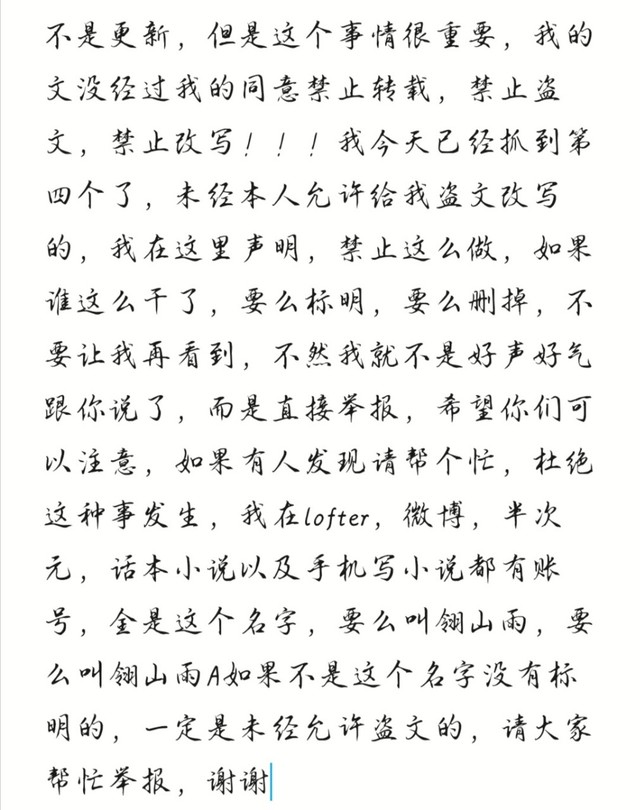 不是更新，但是这个事情很重要，我的
文没经过我的同意禁止转载，禁止盗
文，禁止改写！！！我今天已经抓到第
四个了，未经本人允许给我盗文改写
的，我在这里声明，禁止这么做，如果
谁这么干了，要么标明，要么删掉，不
要让我再看到，不然我就不是好声好气
跟你说了，而是直接举报，希望你们可
以注意，如果有人发现请帮个忙，杜绝
这种事发生，我在lofter，微博，半次
元，话本小说以及手机写小说都有账
号，金是这个名字，要么叫翎山雨，要
么叫翎山雨A如果不是这个名字没有标
明的，一定是未经允许盗文的，请大家
帮忙举报，谢谢